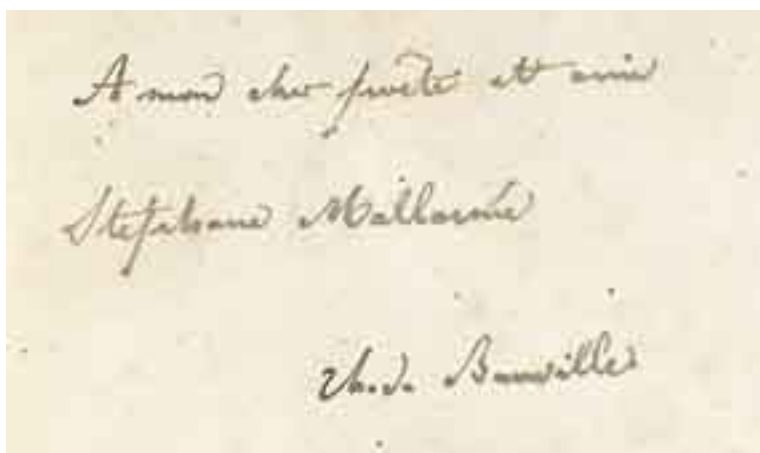 A mon cher poète et ami
Stephane Mallarmé
Th. d. Banville